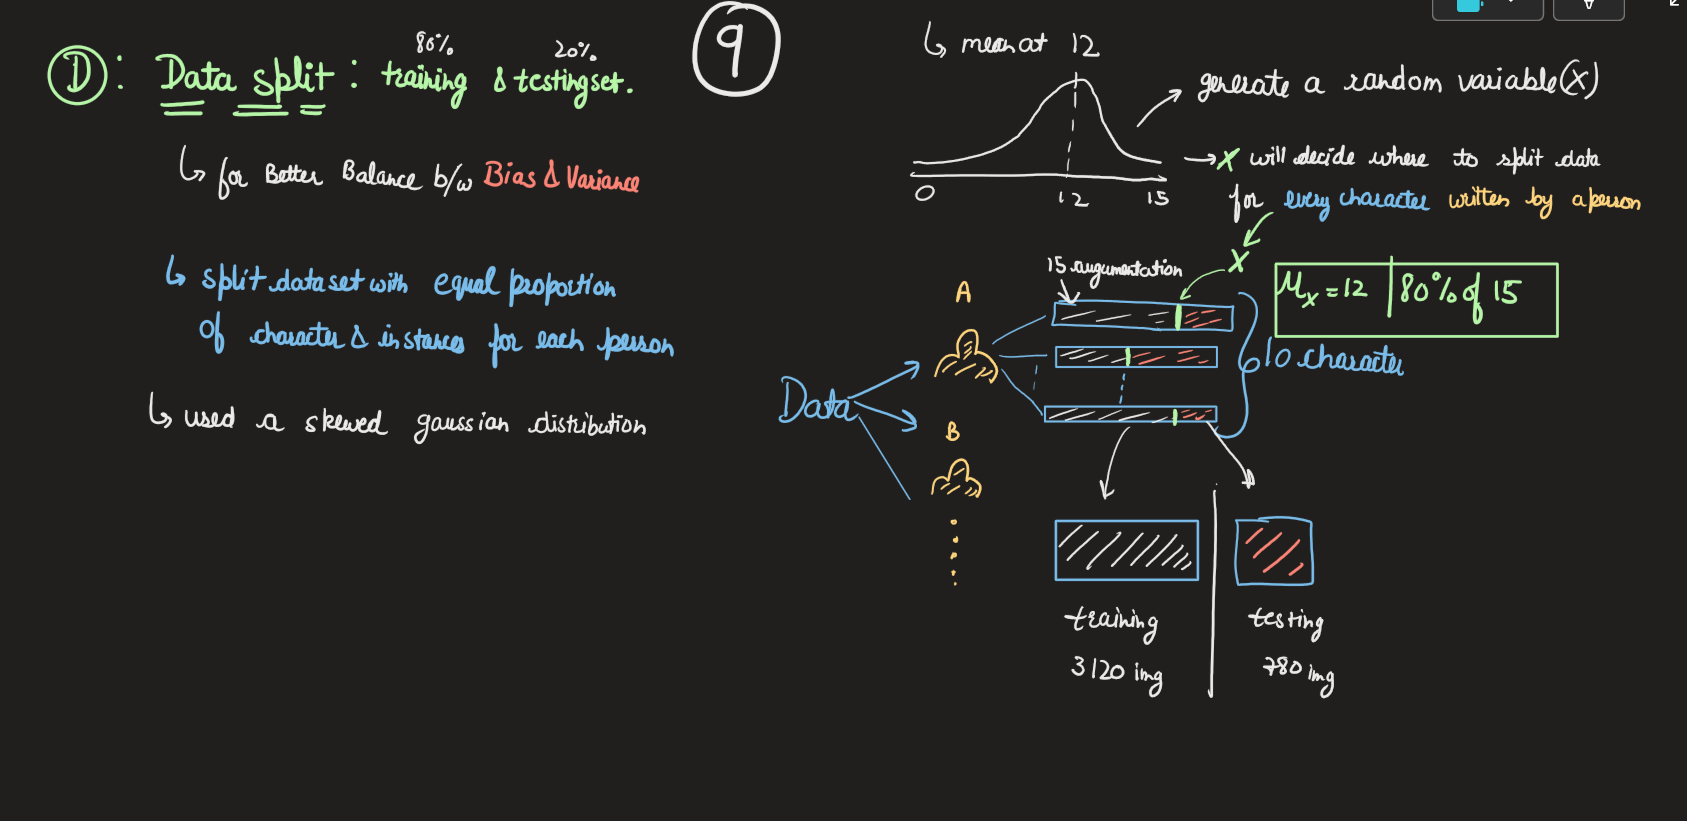 9
D : Data split : training & testing set.
80% 20%
↳ for Better Balance b/w Bias & Variance
↳ split dataset with equal proportion
of character & instances for each person
↳ used a skewed gaussian distribution
↳ mean at 12
0 12 15
→ generate a random variable (X)
→ X will decide where to split data
for every character written by a person
X
15 augumentation
μx = 12 | 80% of 15
10 character
Data
A
B
training
3120 img
testing
780 img